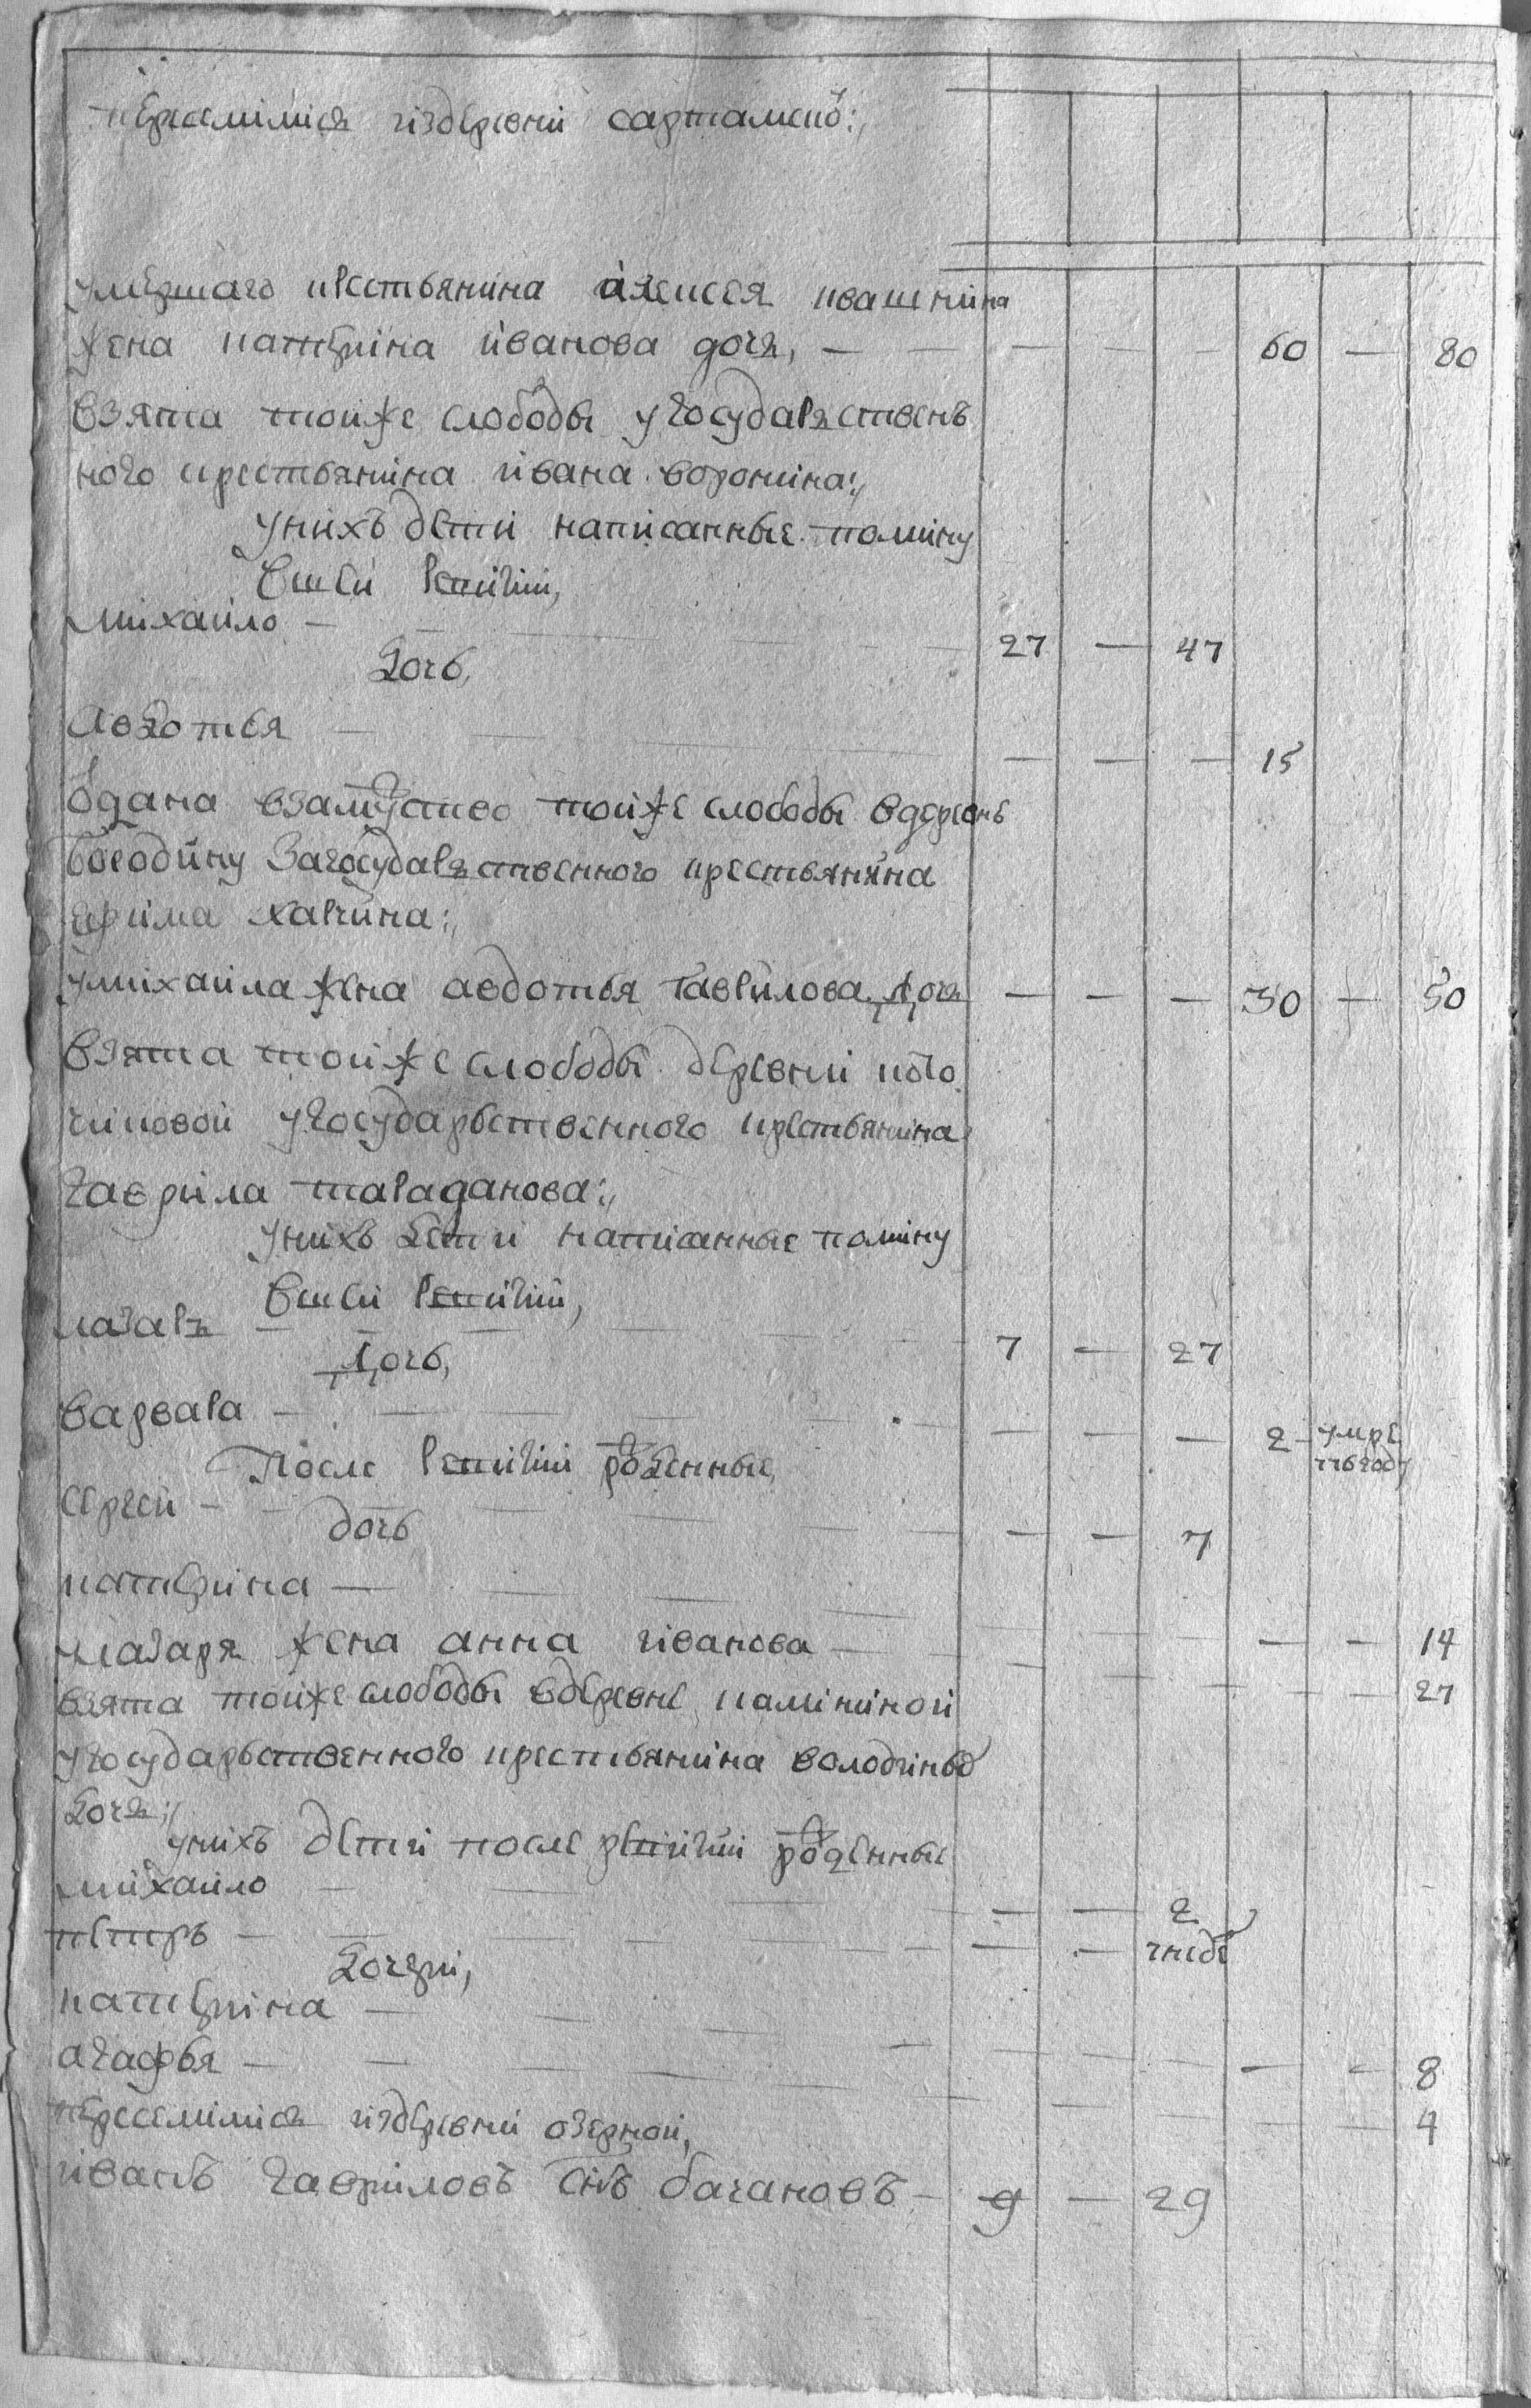 переселился издеревни сартамской:,
умершаго крестьянина алексея квашнина
жена катерина иванова дочь, — — — — — 60 — 80
взята тойже слободы угосударственъ
ного крестьянина ивана воронина:,
унихъ дети написанные попину
вшей ревизии,
михайло — — — 27 — 47
дочь,
авдотья — — — — — 15
одана взамуство тойже слободы вдеревне
бородину загосударственного крестьянина
ефима хавчина:,
умихаила жена авдотья гаврилова дочь — — — 30 — 50
взята тойже слободы деревни кого
чиковой угосударьственного крестьянина
гаврила тараданова:,
унихъ дети написанные попину
вшей ревизии,
лазарь — — — 7 — 27
дочь,
варвара — — — — — — 2 умре
после ревизии рожденные,
сергей — — — — — 7
дочь
катерина — — — — — 14
улазаря жена анна иванова — — — — 27
взята тойже слободы вдеревне калининой
угосударьственного крестьянина
дочь:,
унихъ дети после ревизии рожденные
михайло — — — — 2
петръ — — — — — нед
дочери,
катерина — — — — — 8
агафья — — — — — 4
переселился издеревни озерной,
иванъ гавриловъ снъ бачановъ — 9 — 29